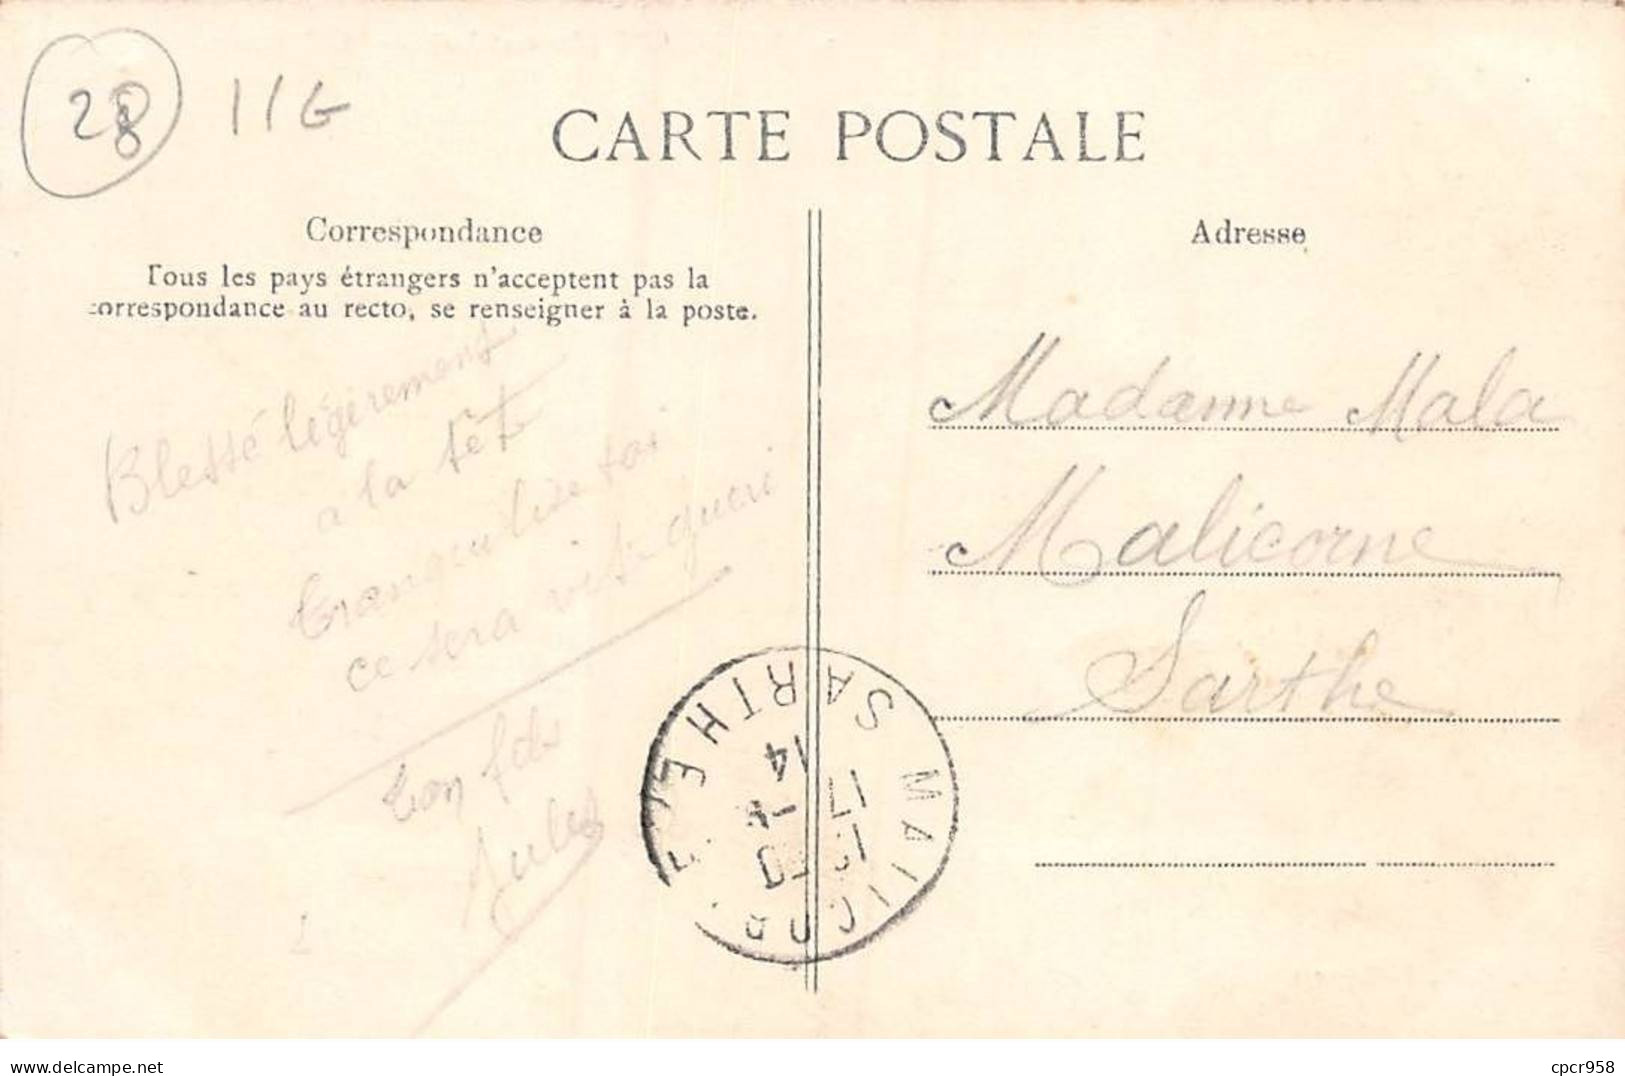 28 11G
CARTE POSTALE
Correspondance
Tous les pays étrangers n'acceptent pas la
correspondance au recto, se renseigner à la poste.
Blessé légèrement
a la tête
tranquilise toi
ce sera vite gueri
ton fils
Jules
Adresse
Madame Mala
Malicorne
Sarthe
MALICORNE
SARTHE
14
17 -
delcampe.net
cpcr958